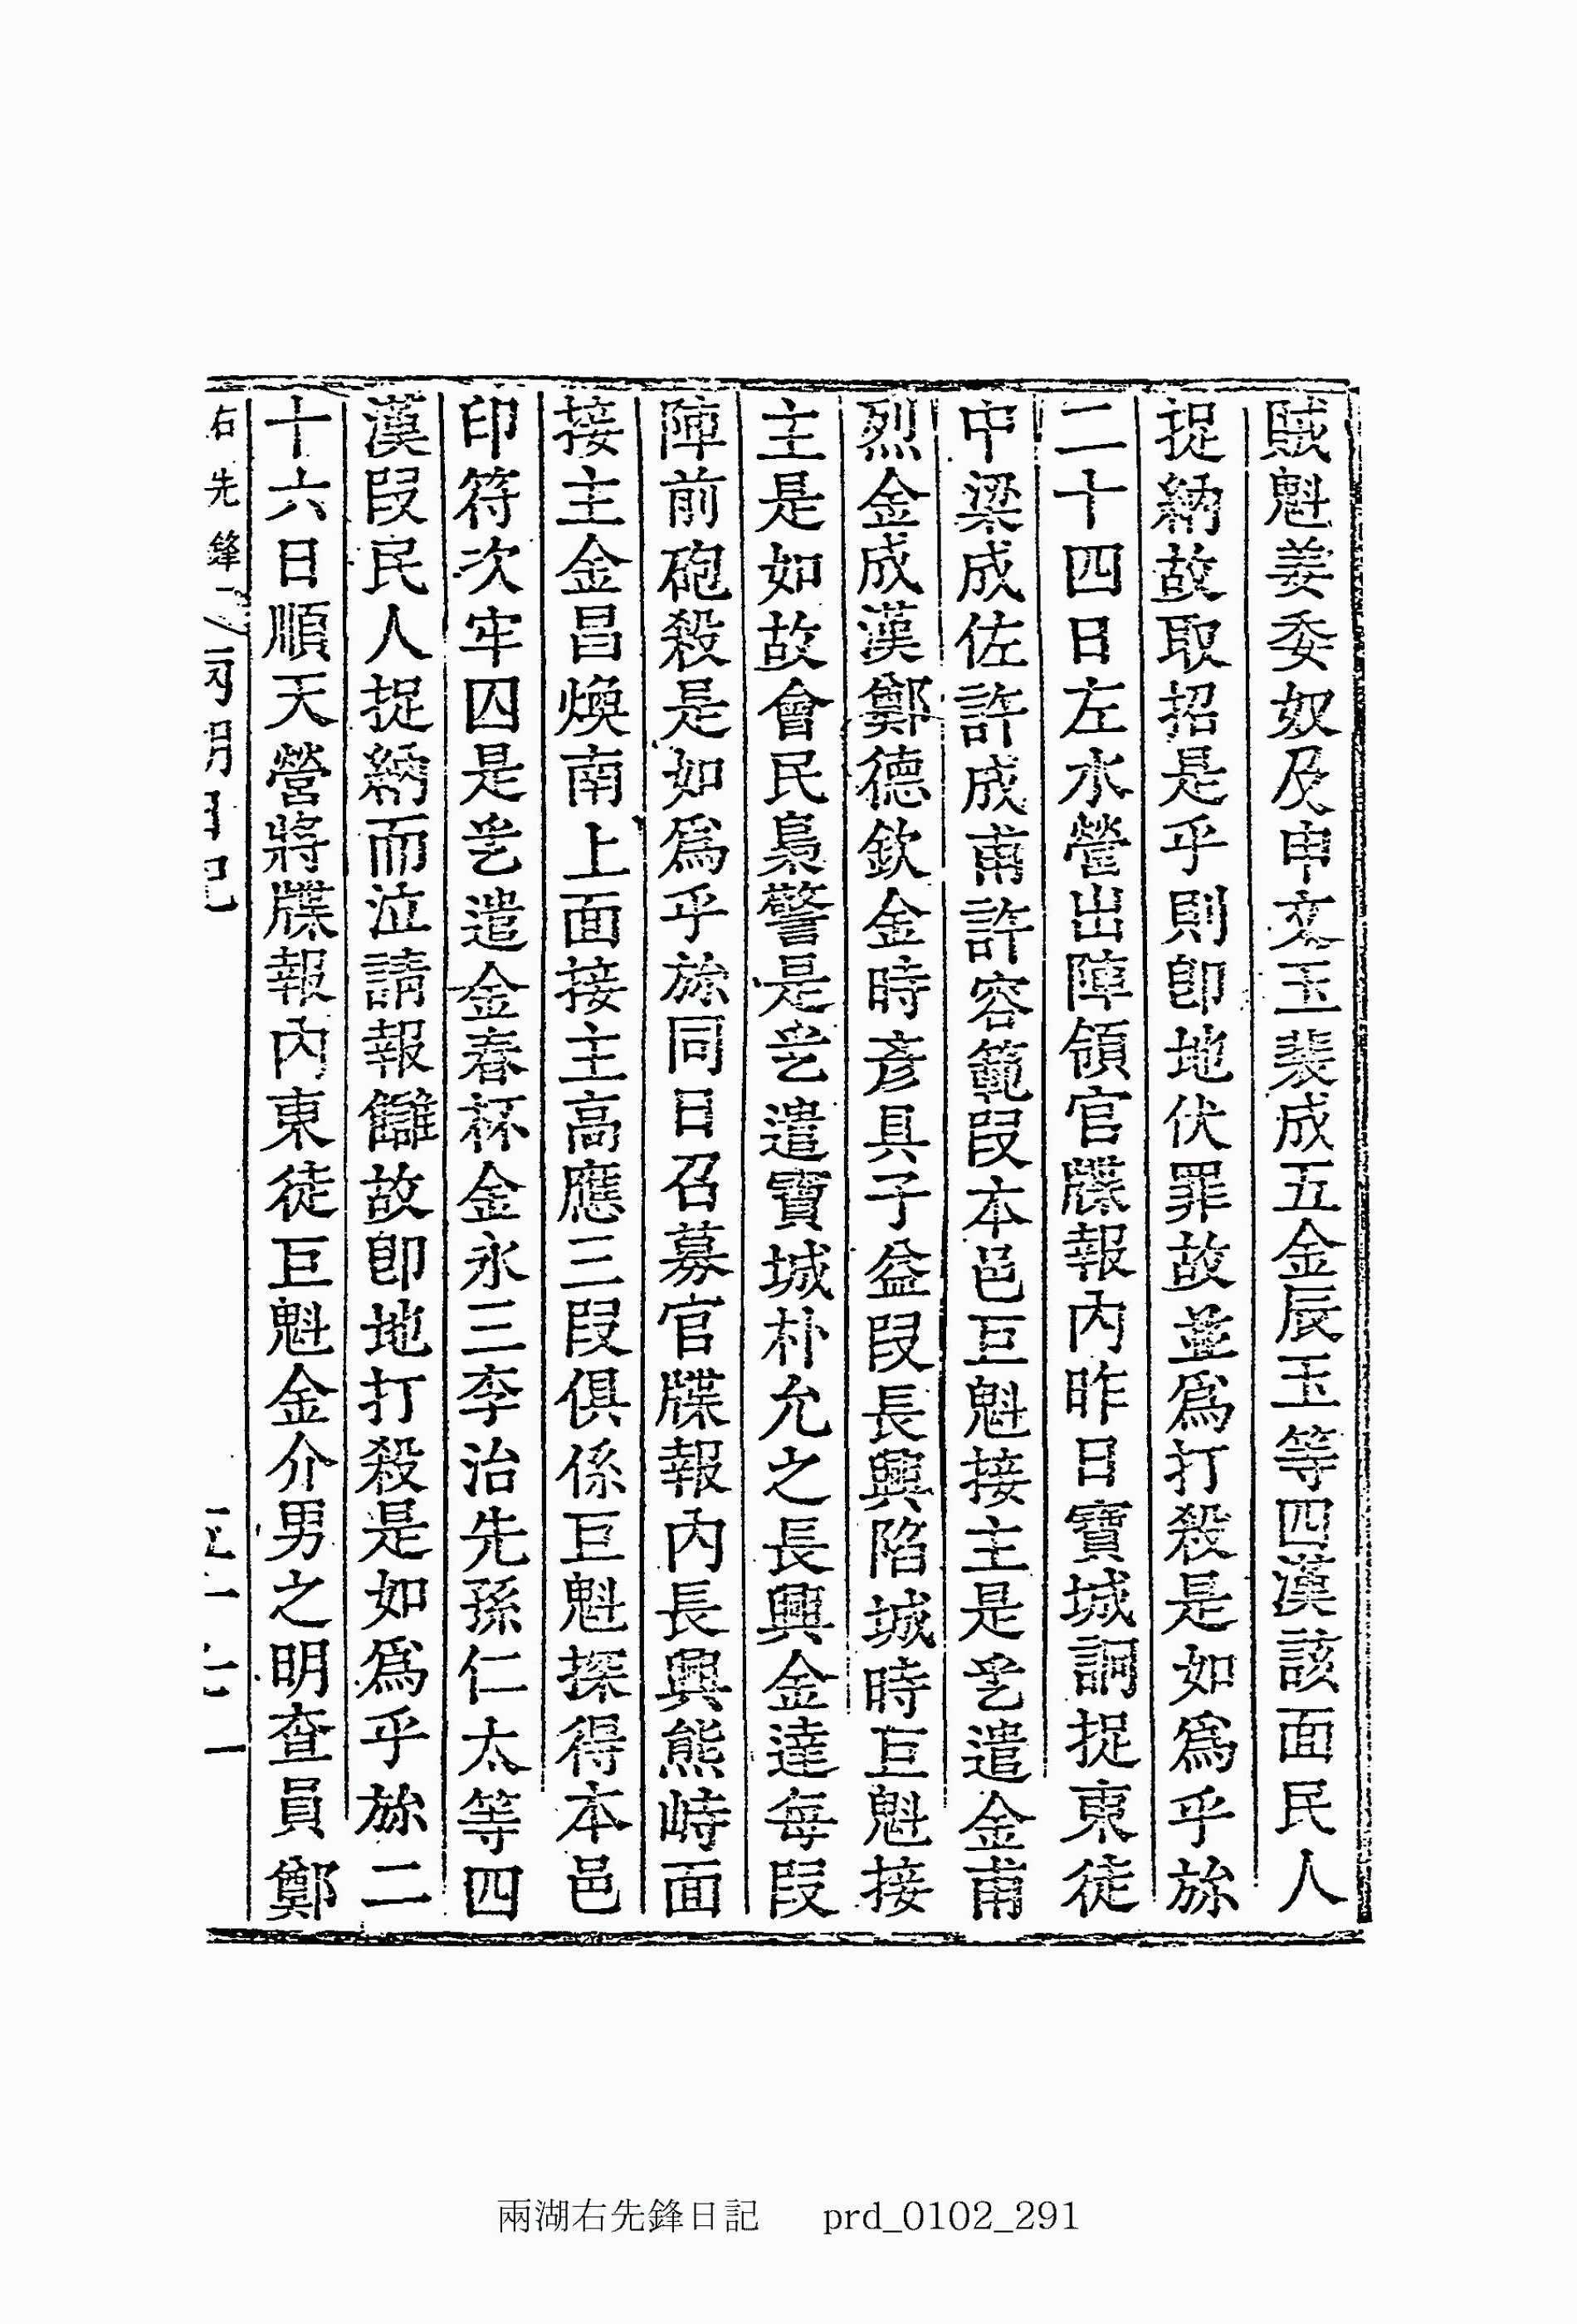 賊魁姜委奴及申文玉裴成五金辰玉等四漢該面民人
捉納故取招是乎則卽地伏罪故並爲打殺是如爲乎旀
二十四日左水營出陣領官牒報內昨日寶城詗捉東徒
中梁成佐許成甫許容範段本邑巨魁接主是乯遣金甫
烈金成漢鄭德欽金時彥具子益段長興陷城時巨魁接
主是如故會民梟警是乯遣寶城朴允之長興金達每段
陣前砲殺是如爲乎旀同日召募官牒報內長興熊峙面
接主金昌煥南上面接主高應三段俱係巨魁探得本邑
印符次牢囚是乯遣金春杯金永三李治先孫仁太等四
漢段民人捉納而泣請報讎故卽地打殺是如爲乎旀二
十六日順天營將牒報內東徒巨魁金介男之明查員鄭
右先鋒
兩湖右先鋒日記 prd_0102_291